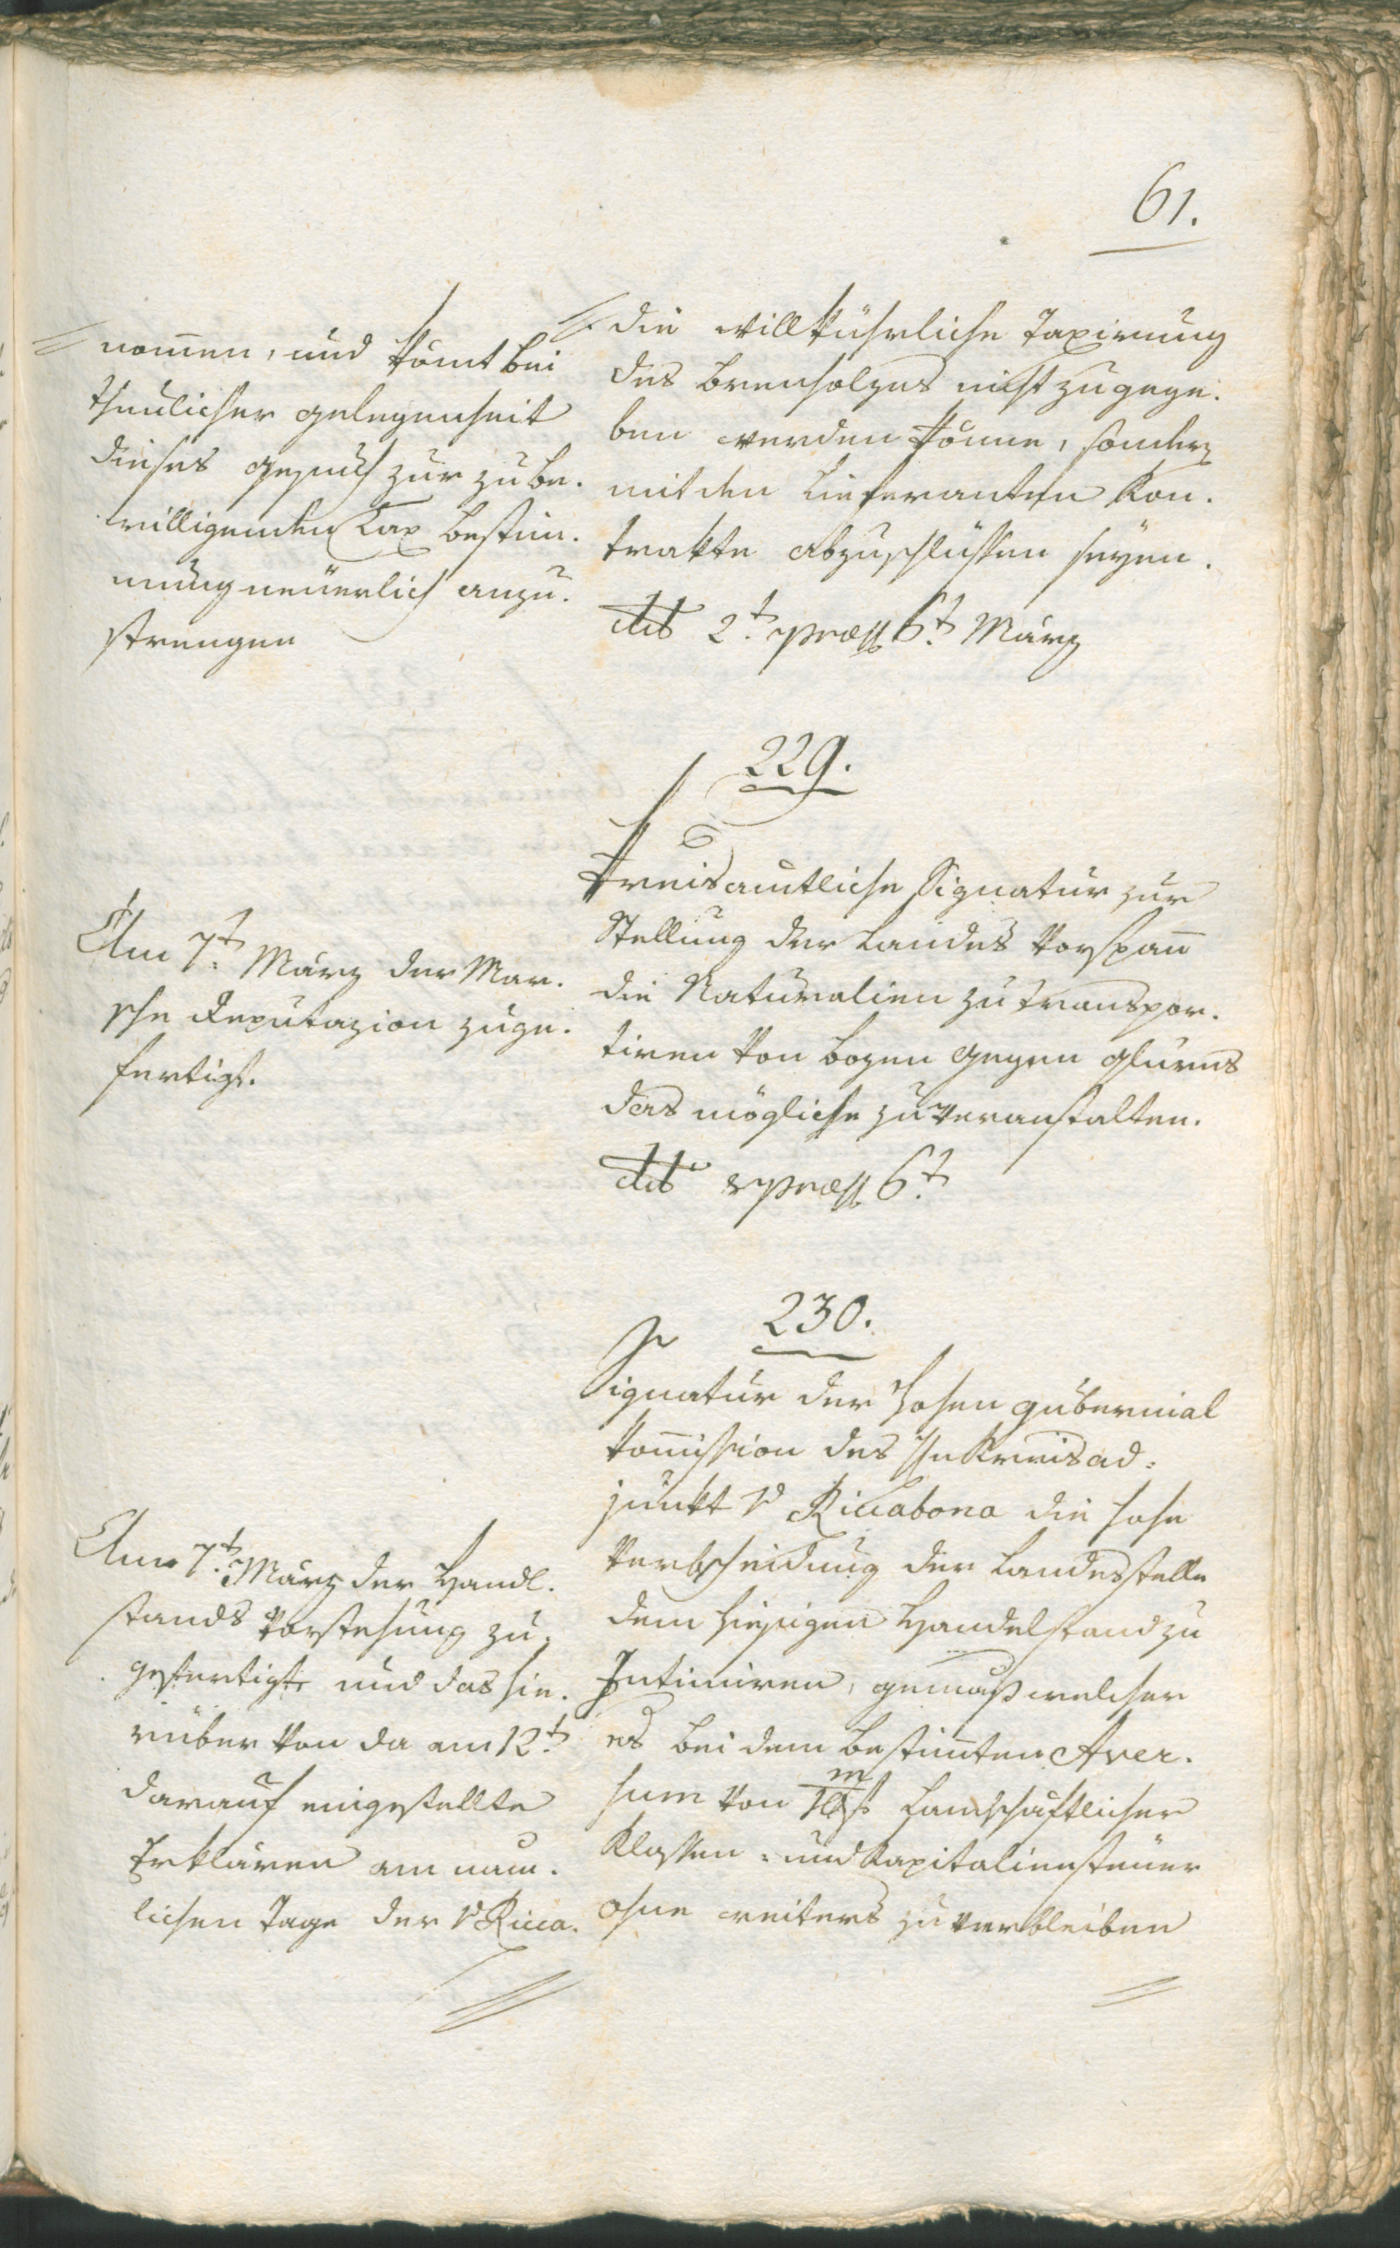 61.
nom̄en, und kom̄t bei
thunlicher gelegenheit
dieses gesuch zur zu be-
willigenden Tax bestim-
mung neüerlich anzu-
strengen
die willkührliche Taxirung
des brenholzes nicht zugege-
ben werden könne, sondern
mit den Lieferanten Kon-
trakte abzuschlüssen seyen.
dtto 2t. præss 6t. März
229.
Kreisamtliche Signatur zur
Stellung der Landes Vorspan̄
die Naturalien zu transpor-
tiren von bozen gegen glurns
das mögliche zu veranstalten.
dtto præss 6t.
Am 7t. März der Mar-
sche Deputazion zuge-
fertigt.
230.
Signatur der Hohen gubernial
Kom̄ission des Kreisad-
junkt v Riccabona die hohe
Verbscheidung der Landesstelle
dem hiesigen Handelstand zu
Intimiren, gemäß welcher
es bei dem bestim̄ten Aver-
sum von 18m f. Landschaftlicher
Klassen- und Kapitaliensteüer
ohne weiters zu verbleiben
Am 7t. März der Handl-
stands Vorstehung zu-
gefertigt und das hie-
rüber von da am 12t.
darauf eingestellte
Erklären am näm-
lichen Tage der v Ricca-